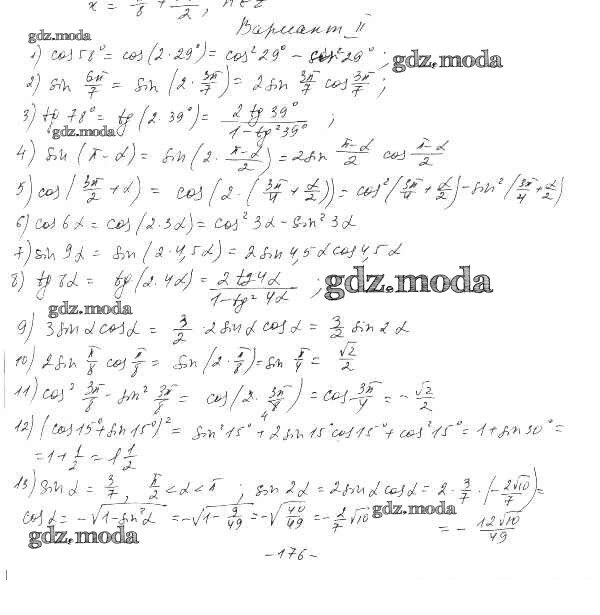 x = π/8 + πn/2, n∈Z
Вариант II
gdz.moda
1) cos 58° = cos(2·29°) = cos² 29° - sin² 29° ;
gdz.moda
2) sin 6π/7 = sin(2·3π/7) = 2 sin 3π/7 cos 3π/7 ;
3) tg 78° = tg(2·39°) = 2 tg 39° / 1 - tg² 39° ;
gdz.moda
4) sin(π - α) = sin(2·π-α/2) = 2 sin π-α/2 cos π-α/2
5) cos(3π/2 + α) = cos(2·(3π/4 + α/2)) = cos²(3π/4 + α/2) - sin²(3π/4 + α/2)
6) cos 6α = cos(2·3α) = cos² 3α - sin² 3α
7) sin 9α = sin(2·4,5α) = 2 sin 4,5α cos 4,5α
8) tg 8α = tg(2·4α) = 2 tg 4α / 1 - tg² 4α ;
gdz.moda
gdz.moda
9) 3 sin α cos α = 3/2 · 2 sin α cos α = 3/2 sin 2α
10) 2 sin π/8 cos π/8 = sin(2·π/8) = sin π/4 = √2/2
11) cos² 3π/8 - sin² 3π/8 = cos(2·3π/8) = cos 3π/4 = - √2/2
12) (cos 15° + sin 15°)² = sin² 15° + 2 sin 15° cos 15° + cos² 15° = 1 + sin 30° =
= 1 + 1/2 = 1 1/2
13) sin α = 3/7, π/2 < α < π ; sin 2α = 2 sin α cos α = 2 · 3/7 · (- 2√10/7) =
cos α = - √1 - sin² α = - √1 - 9/49 = - √40/49 = - 2/7 √10
gdz.moda
= - 12√10/49
gdz.moda
- 176 -